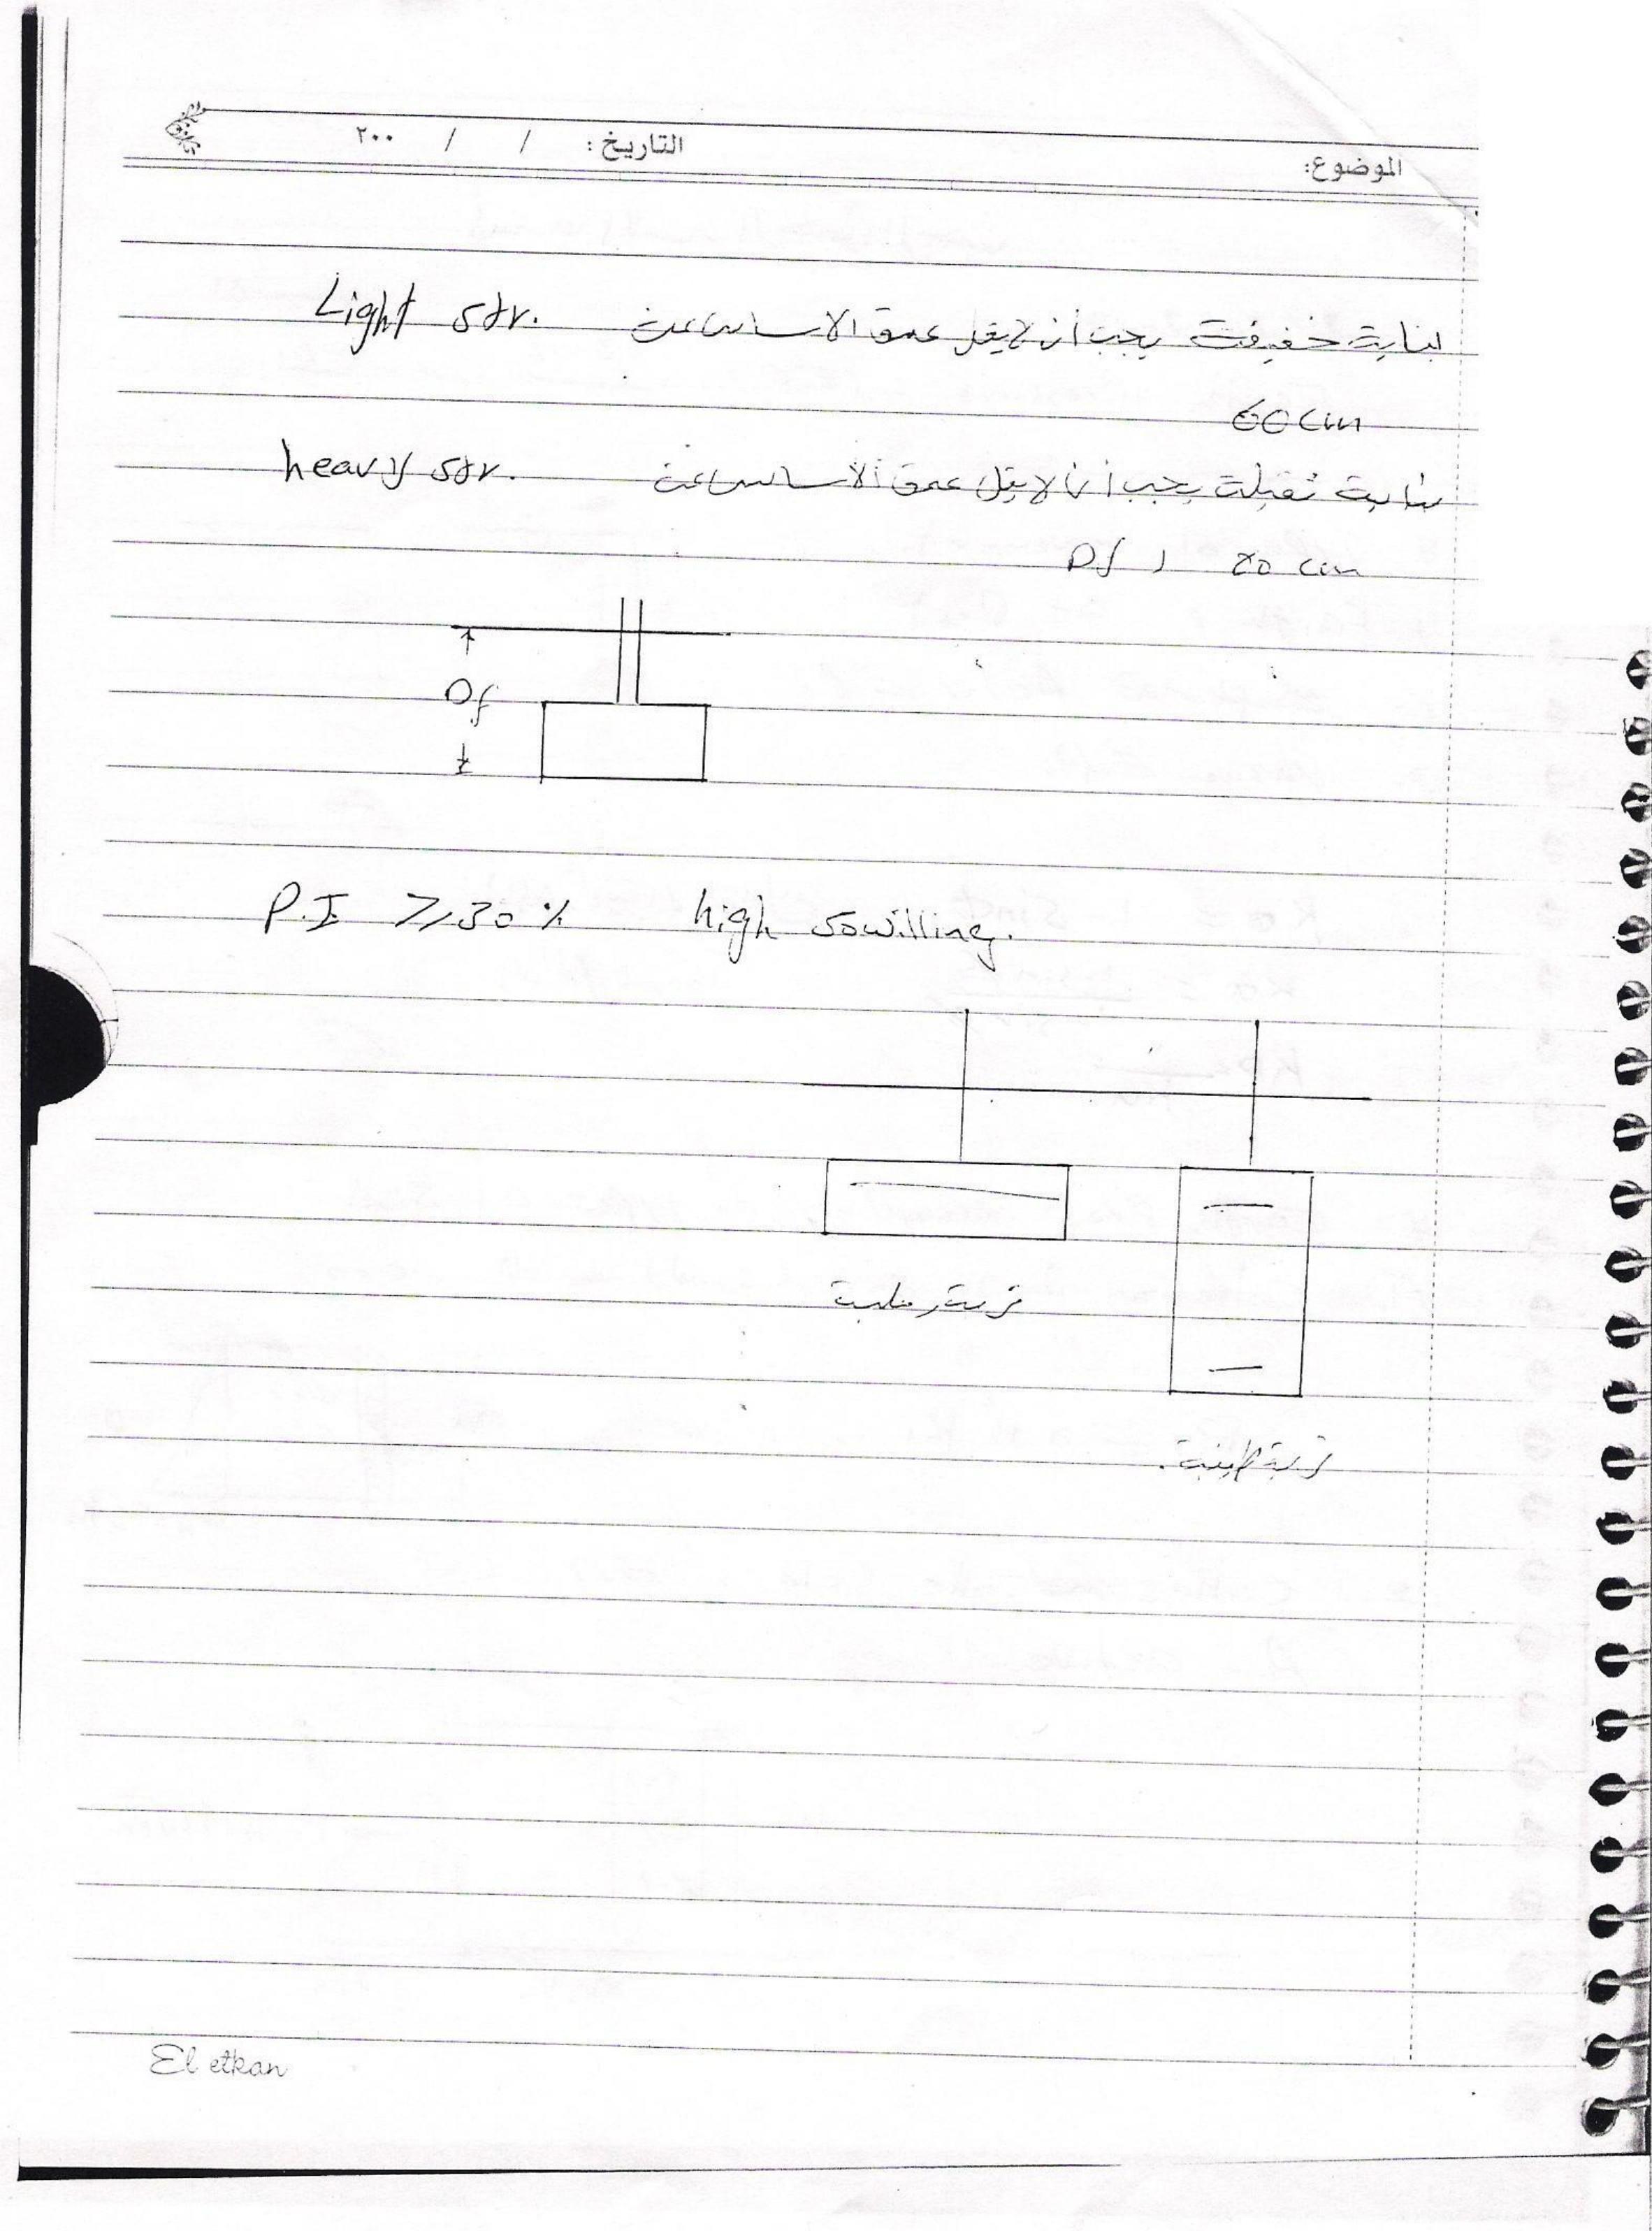 الموضوع: التاريخ : / / ٢٠٠
Light str. لبناية خفيفة يجب أن لا يقل عمق الاساس عن
60 cm
heavy str. بناية ثقيلة يجب أن لا يقل عمق الأساس عن
Df
Df
P.I ≥ 30 % high sowilling.
تربة رملية
تربة طينية.
El etkan